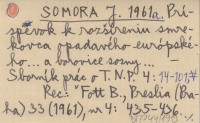 SOMORA J. 1961a. Prí-
spevok k rozšíreniu smre-
kovca opadavého európske-
ho... a borovice sosny... —
Sborník prác o T.N.P. 4: 14-101,
Rec: Fott B., Preslia (Pra-
ha) 33 (1961), nr 4: 435-436.